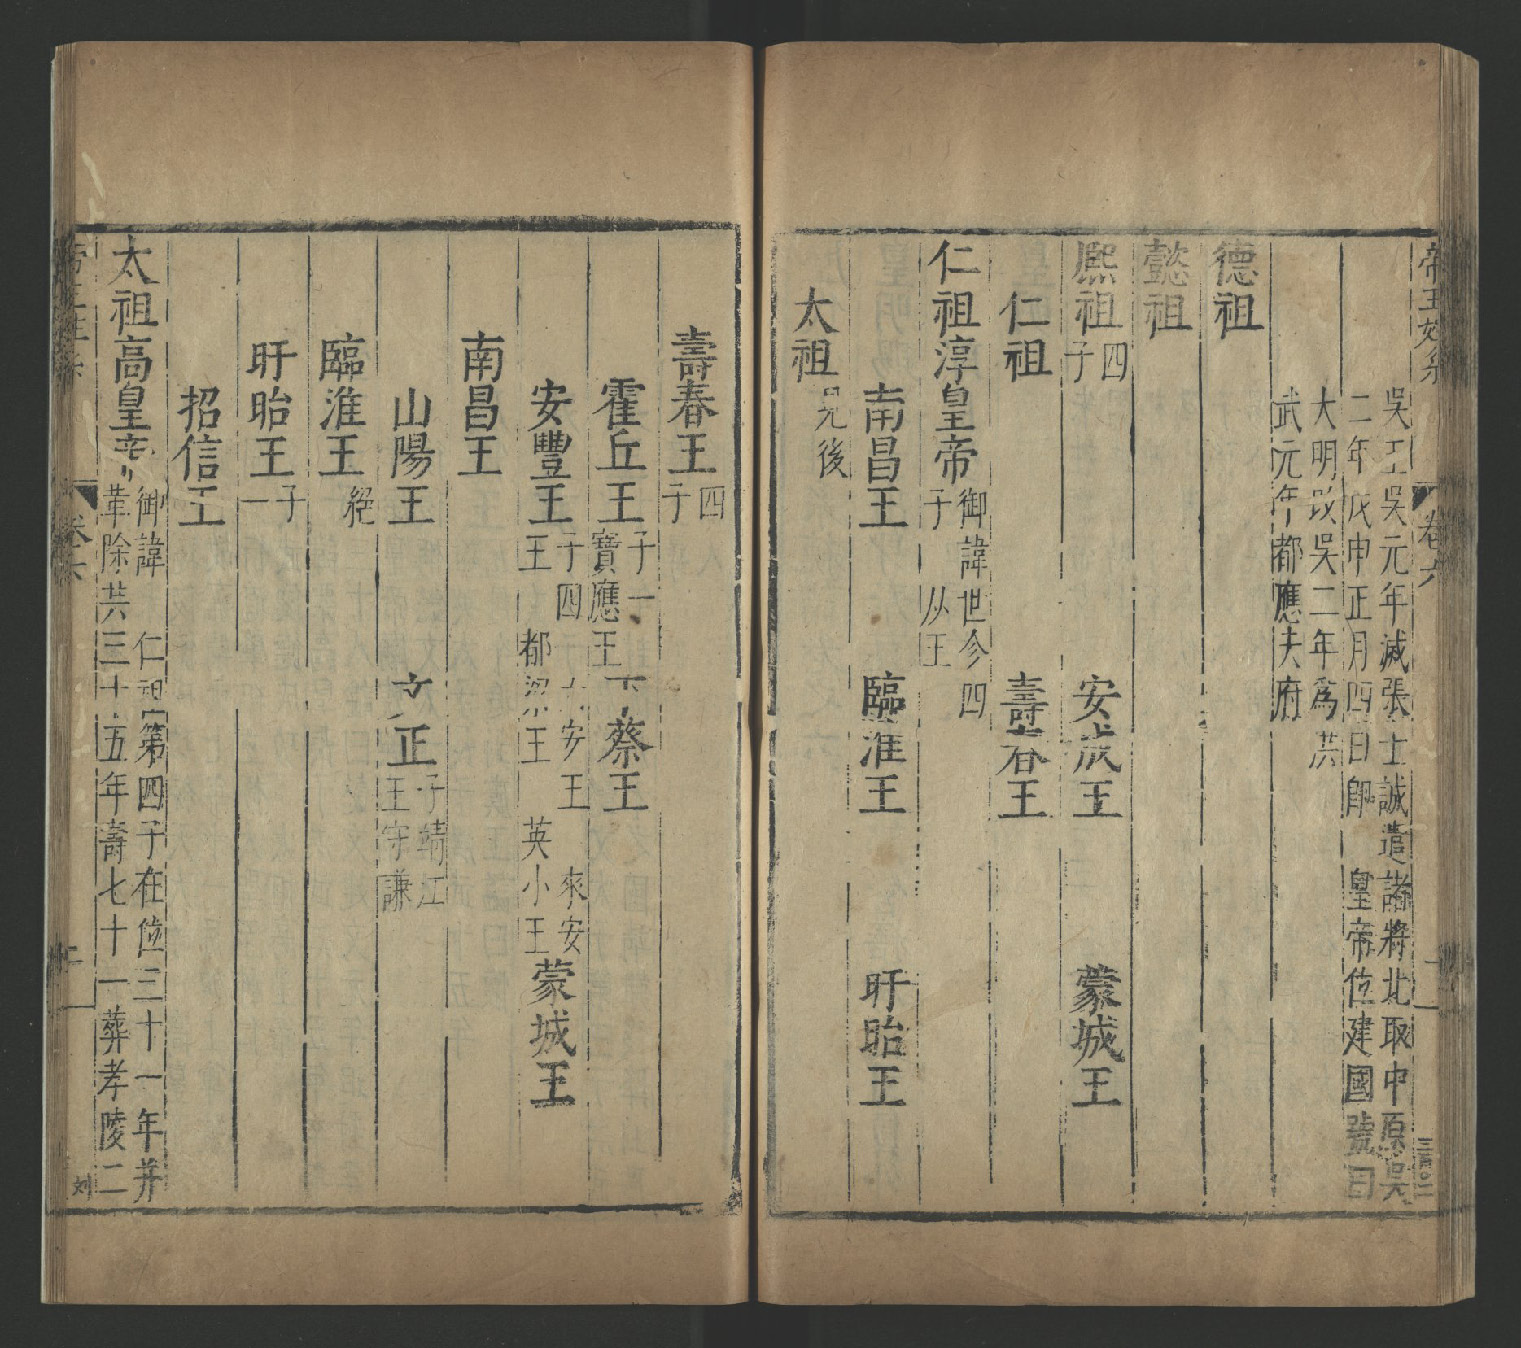 帝王姓系 卷六
吳王吳元年滅張士誠遣諸將北取中原吳
二年戊申正月四日即 皇帝位建國號曰
大明改吳二年爲洪
武元年都應天府
德祖
懿祖
熙祖 四子 安成王 蒙城王
仁祖 壽春王
仁祖淳皇帝 御諱世今四子 从王
南昌王 臨淮王 盱眙王
太祖 見後
壽春王 四子
霍丘王 子一寶應王 下蔡王
安豐王 子四 六安王 來安王 都梁王 英小王 蒙城王
南昌王
山陽王 文正 子靖江王守謙
臨淮王 絕
盱眙王 子一
招信王
太祖高皇帝 御諱 仁祖第四子在位三十一年并
革除共三十五年壽七十一葬孝陵二
卷六